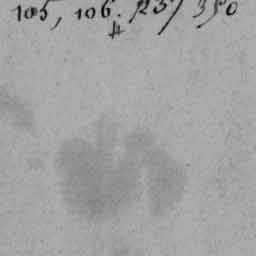 105, 106. 125, 350
#